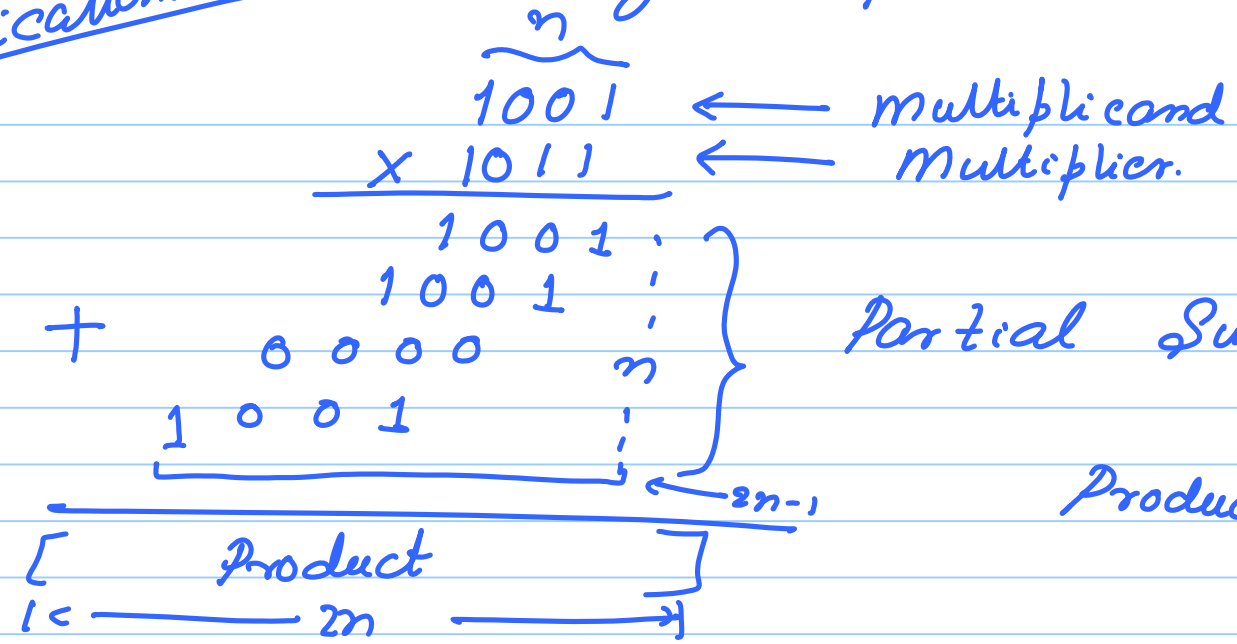 n
1001 ← multiplicand
x 1011 ← multiplier.
1001
1001
+ 0000 n Partial
1001
2n-1
[ Product ]
|< 2n >|